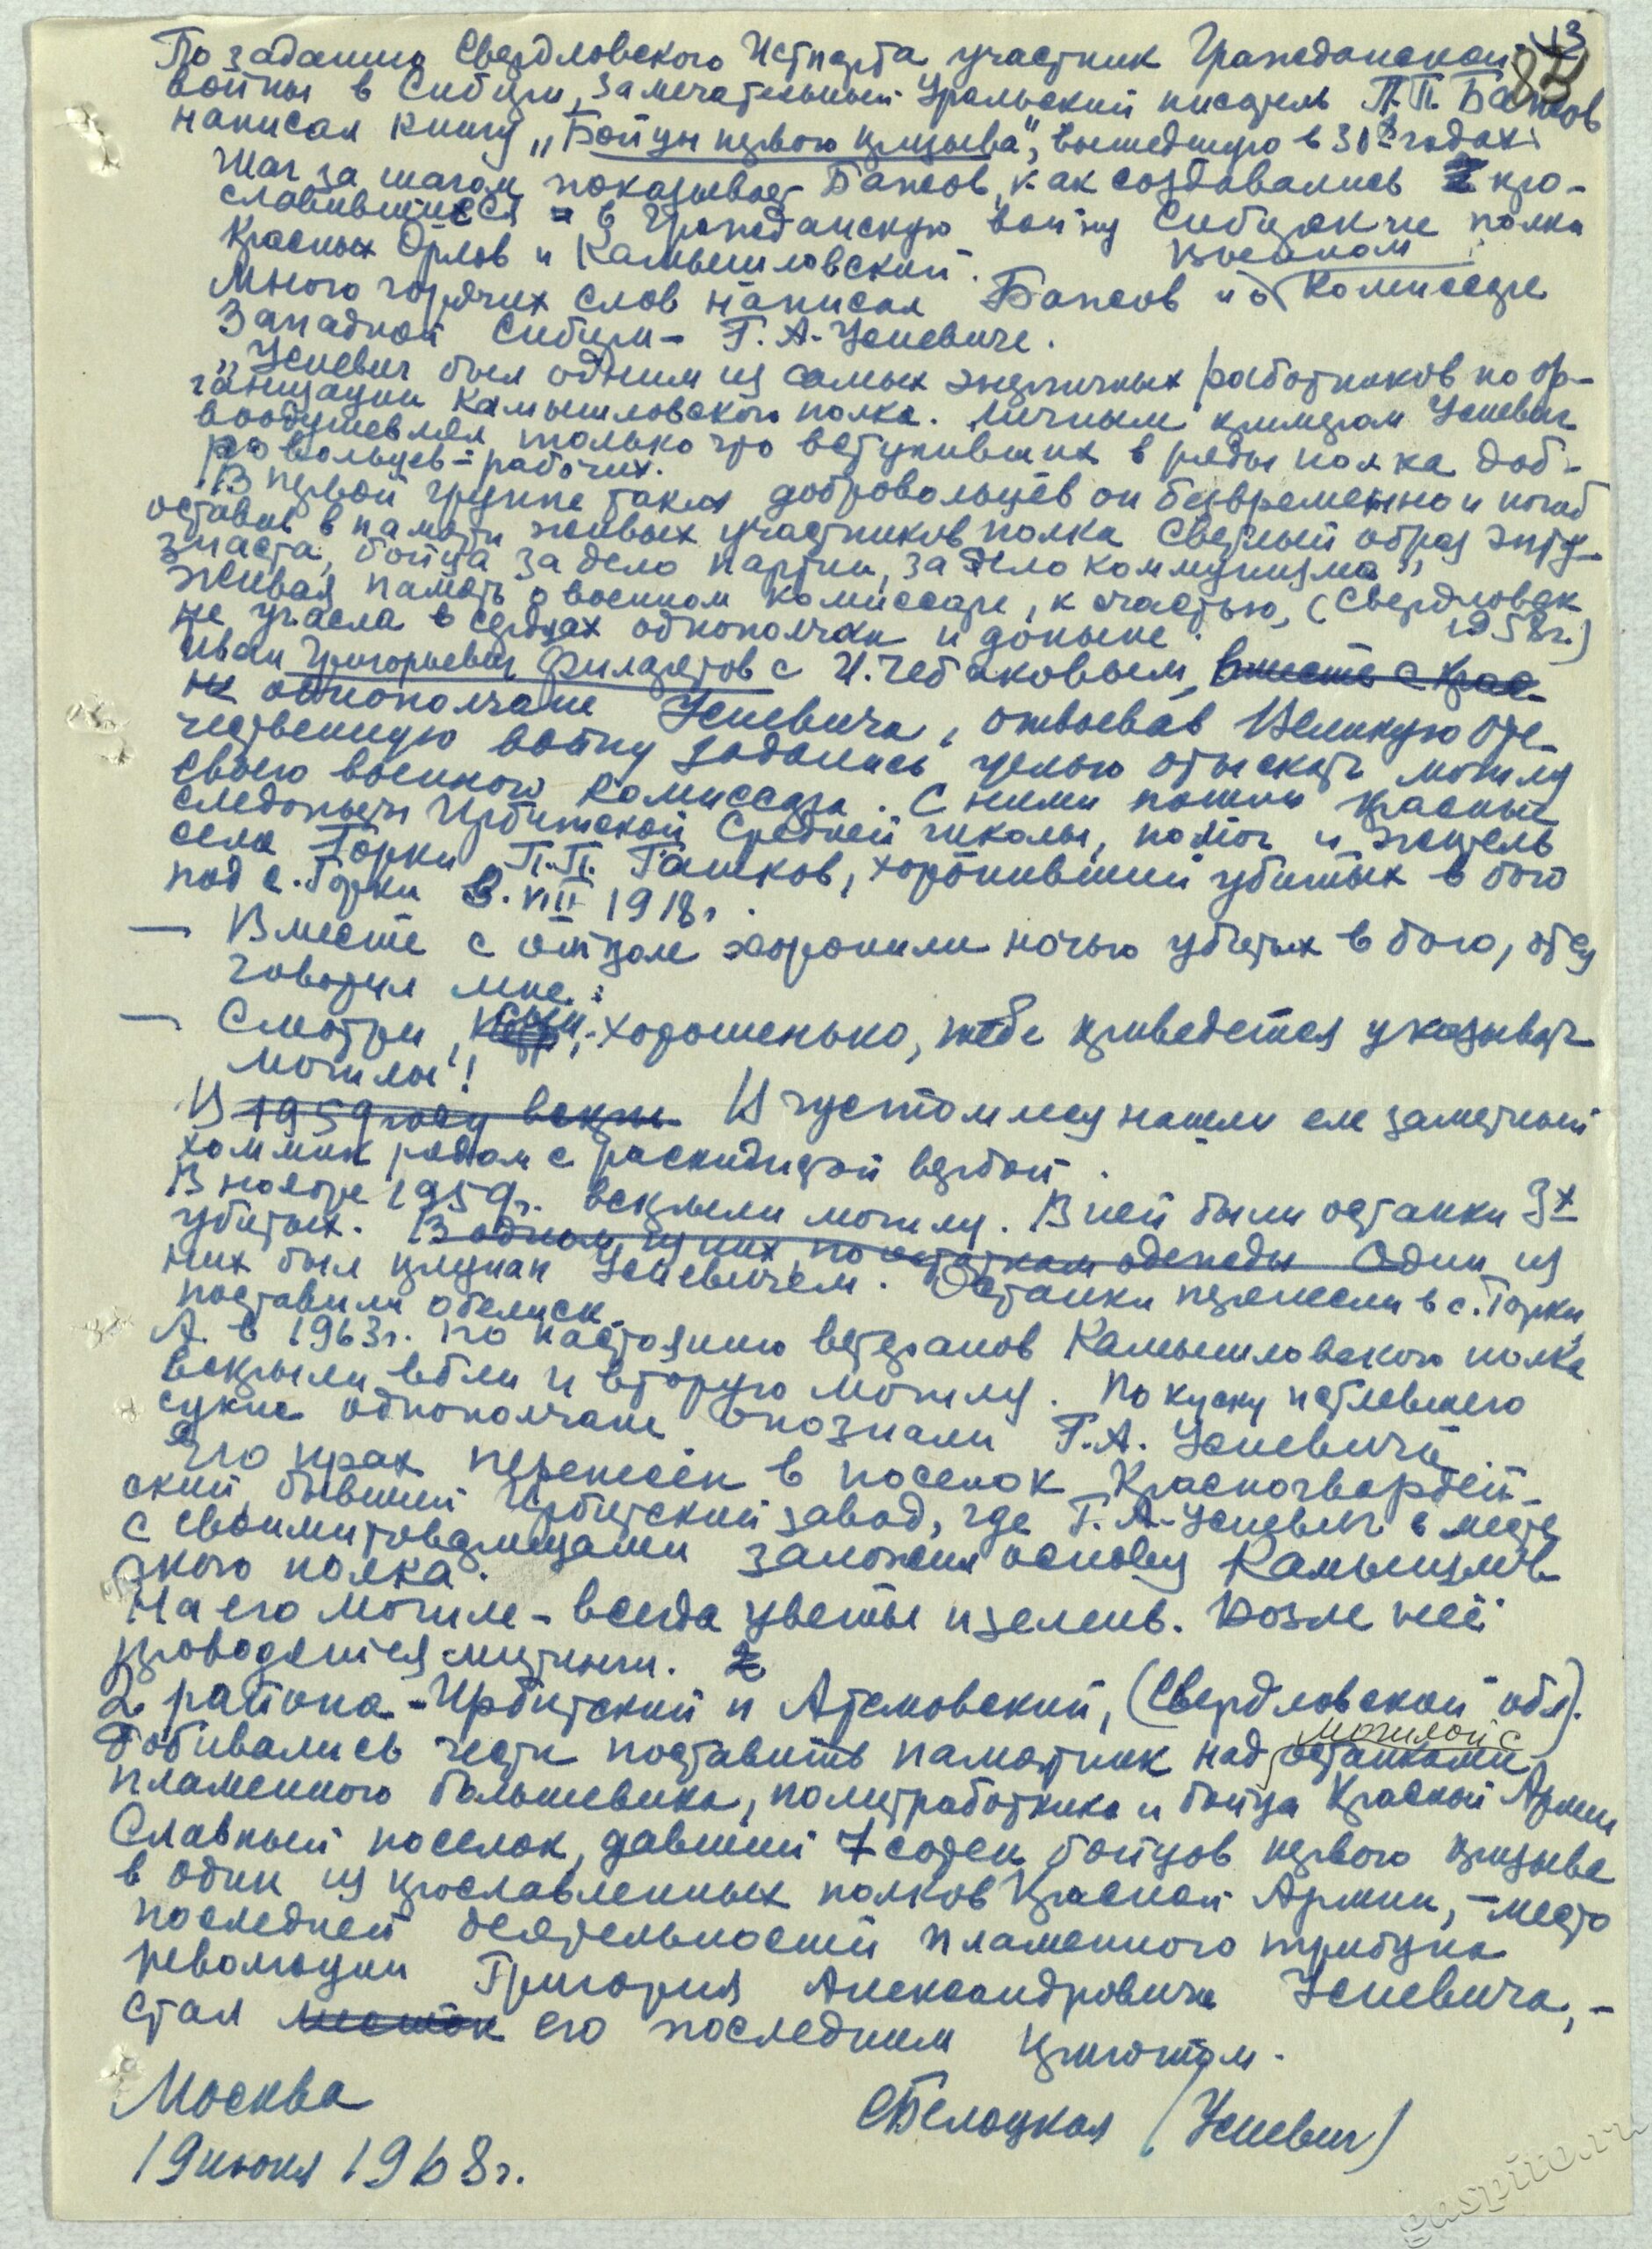 13
82
По заданию Свердловского Истпарта участник Гражданской
войны в Сибири, замечательный Уральский писатель П.П. Бажов
написал книгу „Бойцы первого призыва", вышедшую в 30х годах.
Шаг за шагом показывает Бажов, как создавались про-
славившиеся в Гражданскую войну Сибирские полки
Красных Орлов и Камышловский.
военном
Много горячих слов написал Бажов и о Комиссаре
Западной Сибири – Г.А. Усиевиче.
„Усиевич был одним из самых энергичных работников по ор-
ганизации Камышловского полка. Личным примером Усиевич
воодушевлял только что вступивших в ряды полка доб-
ровольцев-рабочих.
В первой группе таких добровольцев он безвременно и погиб
оставив в памяти живых участников полка светлый образ энту-
зиаста, бойца за дело партии, за дело коммунизма"
Живая память о военном комиссаре, к счастью, (Свердловск
не угасла в сердцах однополчан и доныне. 1958г.)
Иван Григорьевич Филаретов с И. Чебаковым, вместе с крас-
однополчане Усиевича, отвоевав Великую Оте-
чественную войну задались целью отыскать могилу
своего военного комиссара. С ними пошли красные
следопыты Ирбитской средней школы, помог и житель
села Горки П.П. Гашков, хоронивший убитых в бою
под с. Горки 8.VIII 1918г.
— Вместе с отцом хоронили ночью убитых в бою, отец
говорил мне:
— Смотри, сын, хорошенько, тебе приведется указывать
могилы!
В 1959 году вскры- В густом лесу нашли еле заметный
холмик рядом с раскидистой вербой.
В ноябре 1959г. вскрыли могилу. В ней были останки 3х
убитых. В одном из них по остаткам одежды Один из
них был признан Усиевичем. Останки перенесли в с. Горки,
поставили обелиск.
А в 1963г. по настоянию ветеранов Камышловского полка
вскрыли вблизи вторую могилу. По куску истлевшего
сукна однополчане опознали Г.А. Усиевича.
Его прах перенесён в поселок Красногвардей-
ский, бывший Ирбитский завод, где Г.А. Усиевич вместе
с своими товарищами заложил основу Камышлов-
ского полка.
На его могиле – всегда цветы и зелень. Возле неё
проводятся митинги.
2 района – Ирбитский и Артемовский, (Свердловской обл).
могилой с
добивались чести поставить памятник над останками
пламенного большевика, политработника и бойца Красной Армии
Славный поселок, давший 7 сотен бойцов первого призыва
в один из прославленных полков Красной Армии, – место
последней деятельности пламенного трибуна
революции Григория Александровича Усиевича, –
стал местом его последним приютом.
Москва
СБелоцкая (Усиевич)
19 июля 1968г.
gaspito.ru